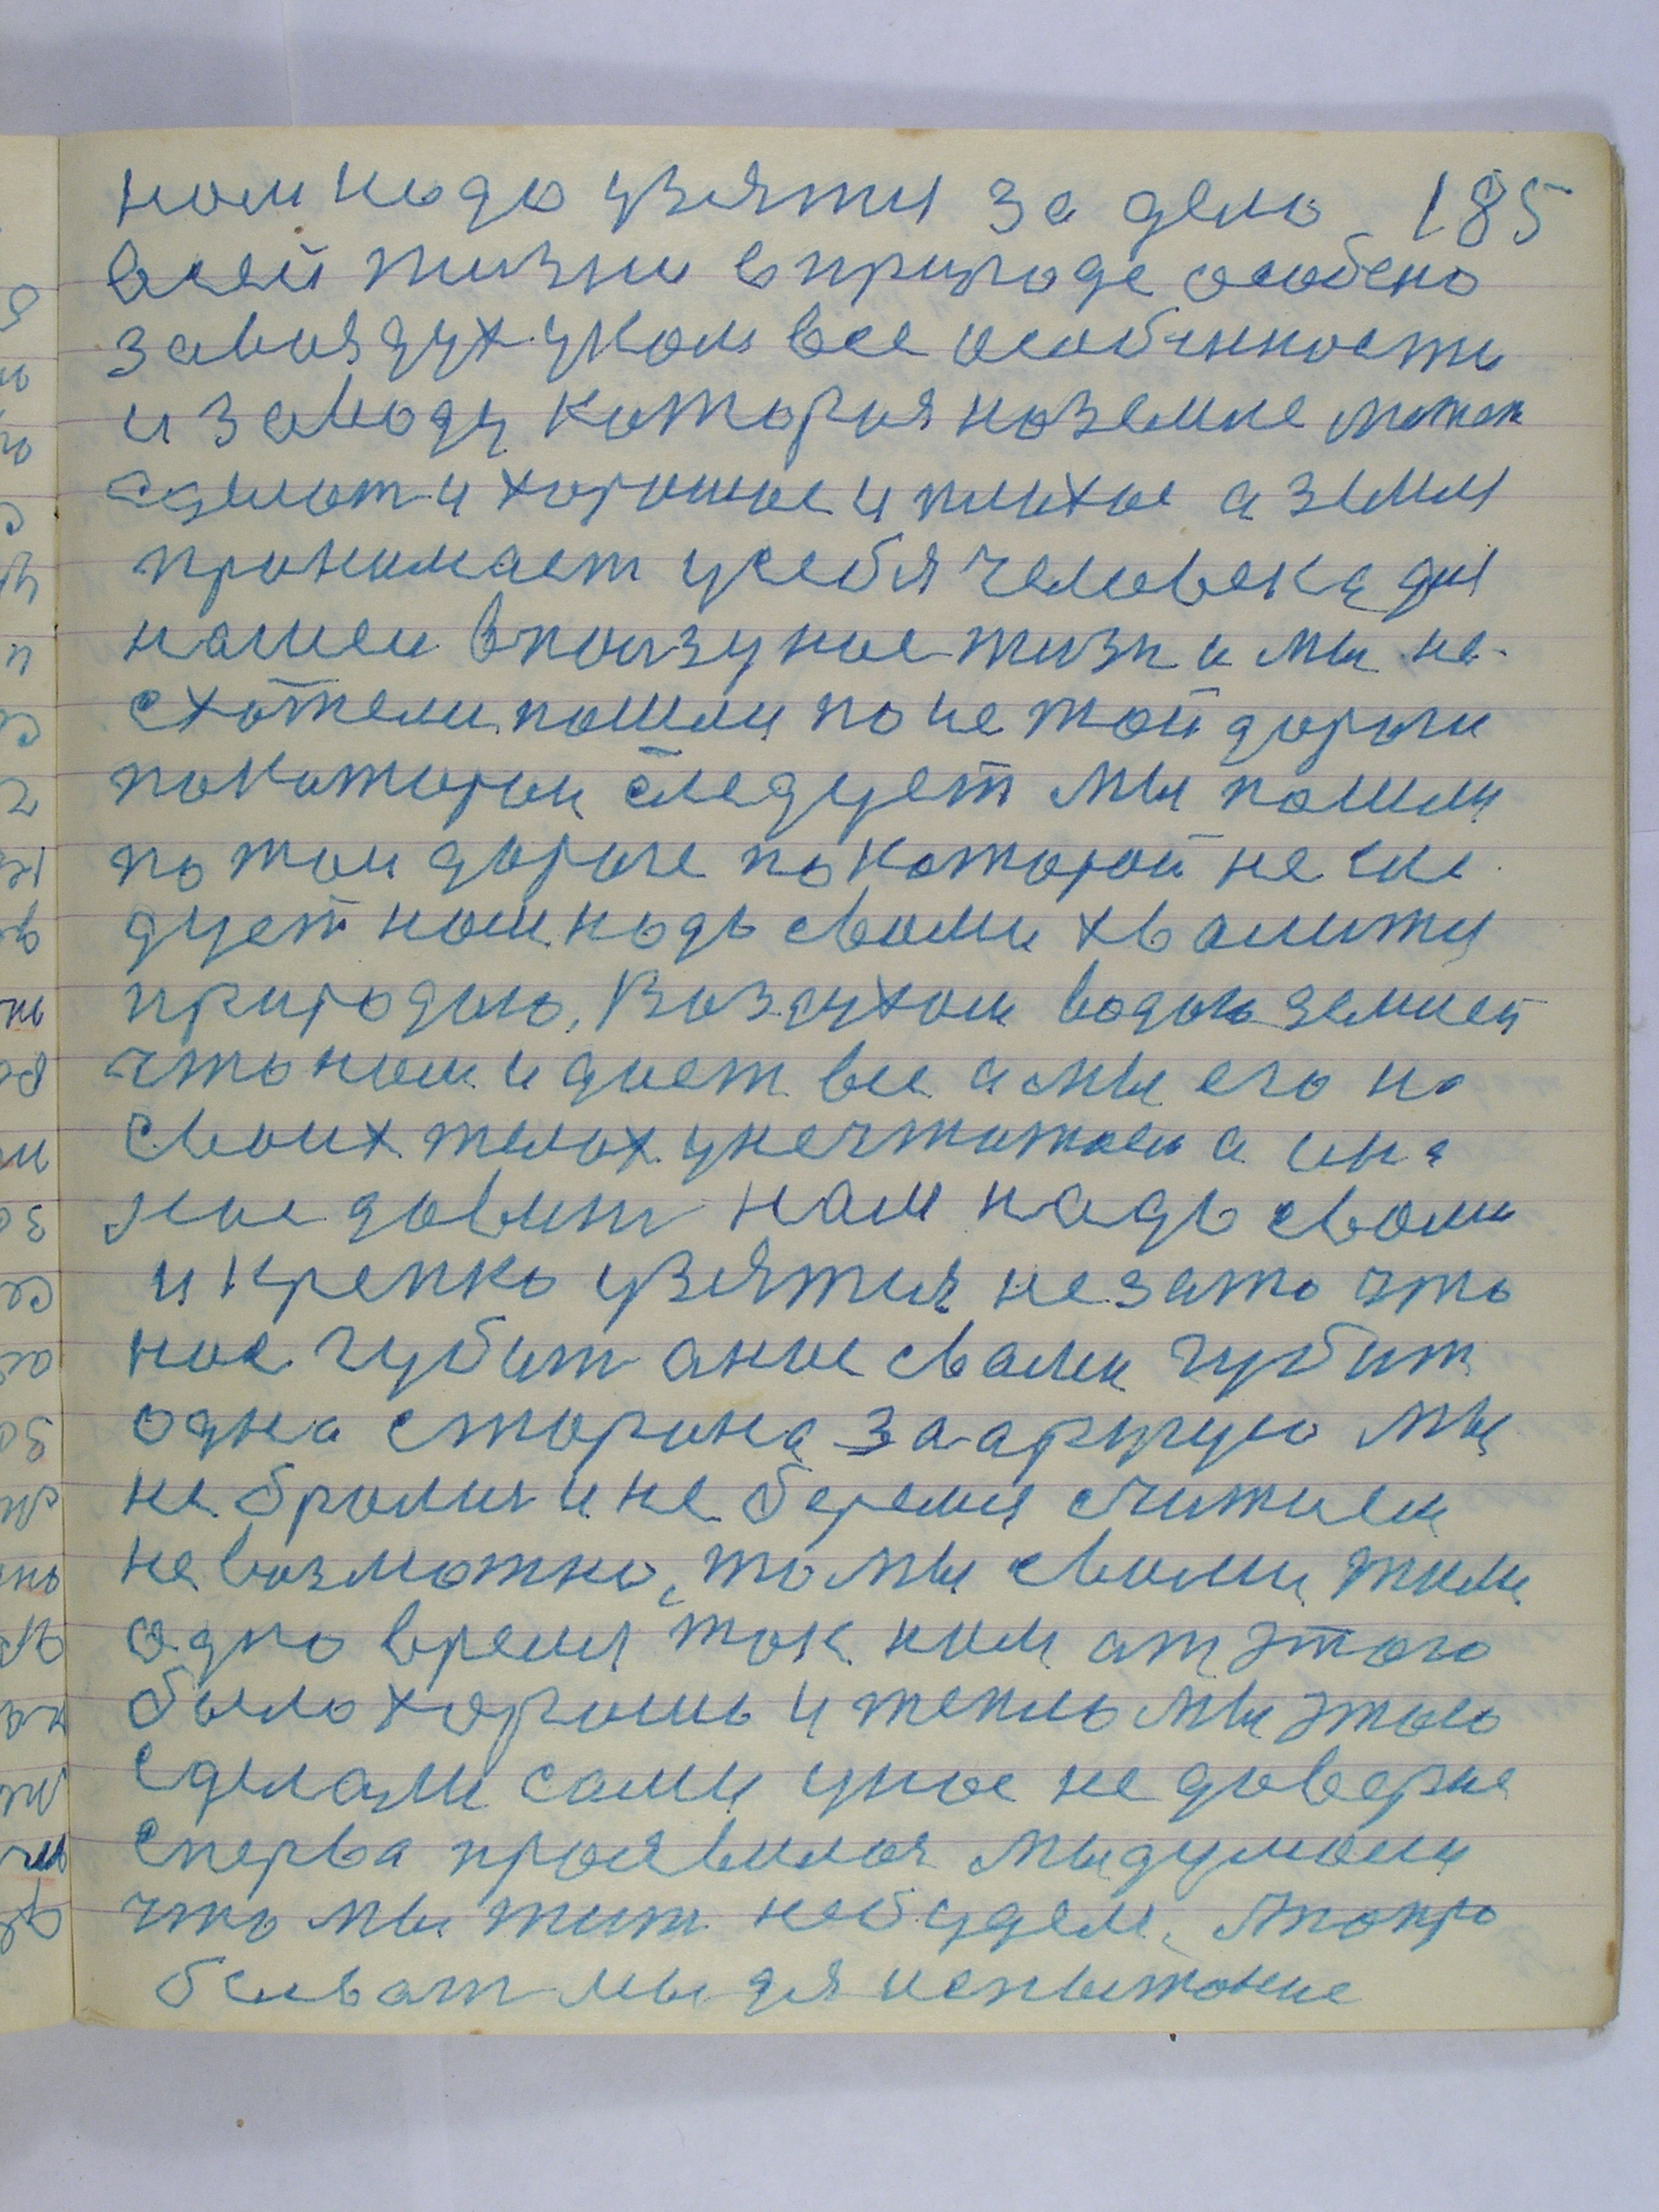 нам надо узятся за дело 185
всей жизни в природе особено
за воздух у ком все особинности
и за воду которая на земле может
сделат и хорошое и плихое а земля
принимает у себя человека для
нашей в ползу ное жизни мы не
схотели пошли по не той дороги
по которои следует мы пошли
по тои дороге по которой не сле
дует нам надо своими хвалится
природою, Воздухом водою землей
что нам и дает все а мы его на
своих телах унечтожаем а ана
нас давит нам надо свами
и крепко узятися не за то что
нас губит а нас свами губит
одна сторона за другую мы
не бромся и не беремся считаем
невозможно, то мы свами жили
одно время так нам ат этого
было хорошо и тепло мы этого
сделали сами у нас не доверие
сперва проявилося мы думали
что мы жит не будем, а попро
боват мы для испытание